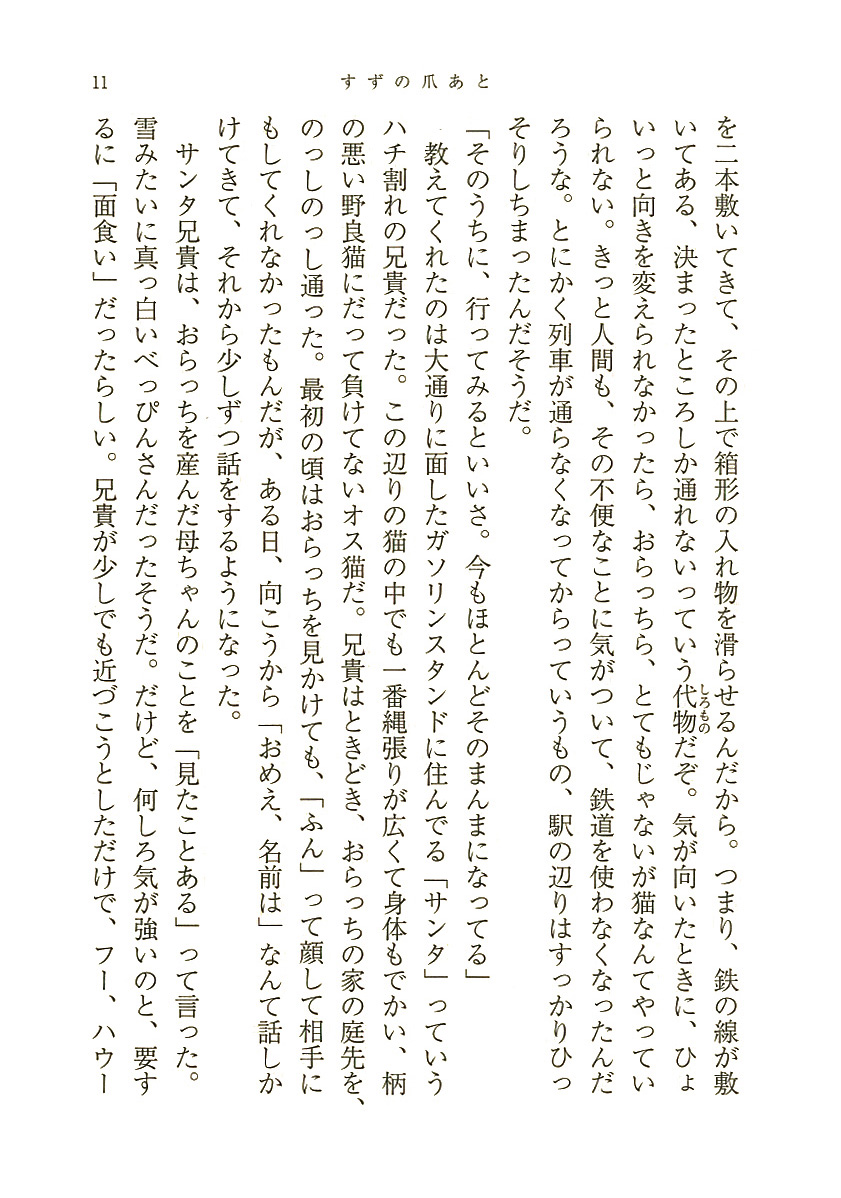 11
すずの爪あと
を二本敷いてきて、その上で箱形の入れ物を滑らせるんだから。つまり、鉄の線が敷
いてある、決まったところしか通れないっていう代物だぞ。気が向いたときに、ひょ
しろもの
いっと向きを変えられなかったら、おらっちら、とてもじゃないが猫なんてやってい
られない。きっと人間も、その不便なことに気がついて、鉄道を使わなくなったんだ
ろうな。とにかく列車が通らなくなってからっていうもの、駅の辺りはすっかりひっ
そりしちまったんだそうだ。
「そのうちに、行ってみるといいさ。今もほとんどそのまんまになってる」
教えてくれたのは大通りに面したガソリンスタンドに住んでる「サンタ」っていう
ハチ割れの兄貴だった。この辺りの猫の中でも一番縄張りが広くて身体もでかい、柄
の悪い野良猫にだって負けてないオス猫だ。兄貴はときどき、おらっちの家の庭先を、
のっしのっし通った。最初の頃はおらっちを見かけても、「ふん」って顔して相手に
もしてくれなかったもんだが、ある日、向こうから「おめえ、名前は」なんて話しか
けてきて、それから少しずつ話をするようになった。
サンタ兄貴は、おらっちを産んだ母ちゃんのことを「見たことある」って言った。
雪みたいに真っ白いべっぴんさんだったそうだ。だけど、何しろ気が強いのと、要す
るに「面食い」だったらしい。兄貴が少しでも近づこうとしただけで、フー、ハウー